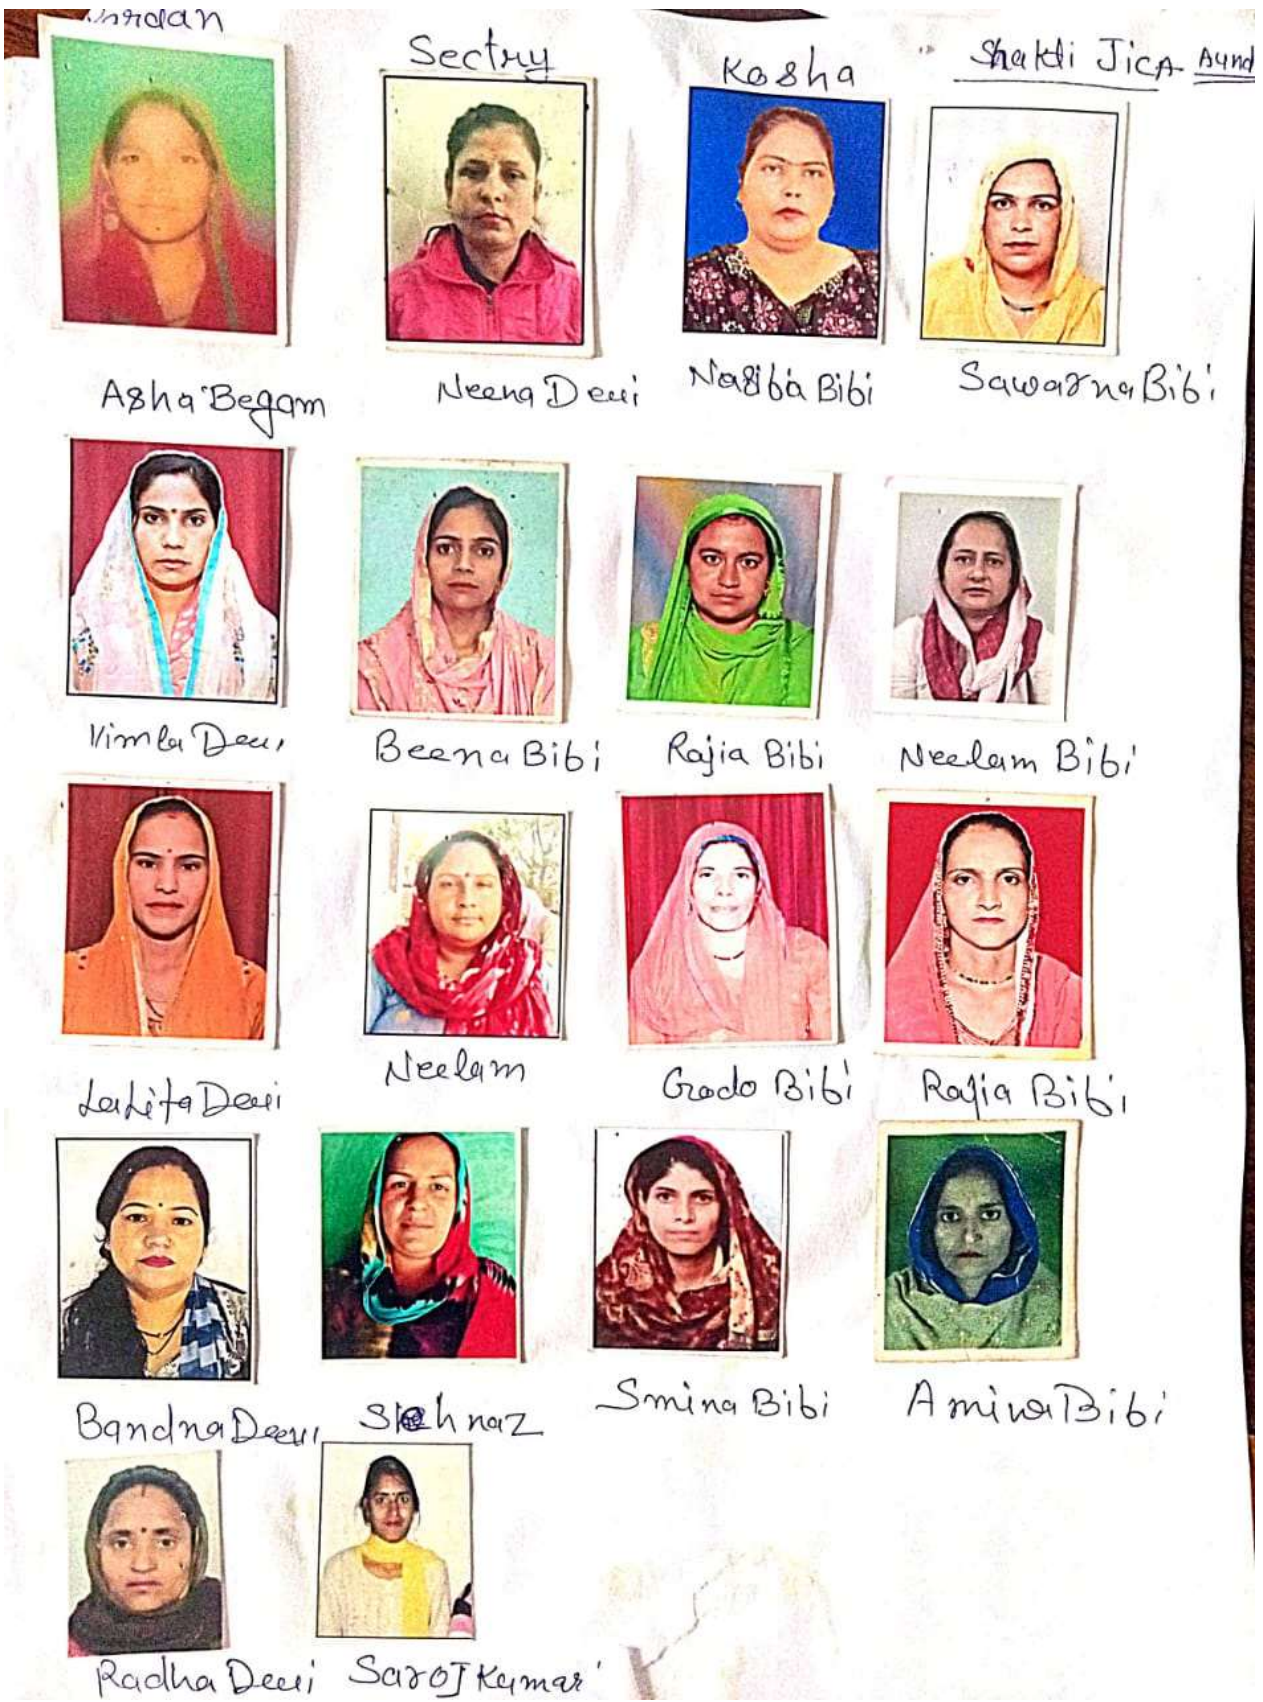 Sectry
Kosha
Shakti JICA Aund
Asha Begam
Neena Devi
Nasiba Bibi
Sawarna Bibi
Vimla Devi
Beena Bibi
Rajia Bibi
Neelam Bibi
Lalita Devi
Neelam
Grodo Bibi
Rajia Bibi
Bandna Devi
Shehnaz
Smina Bibi
Amina Bibi
Radha Devi
Saroj Kumari